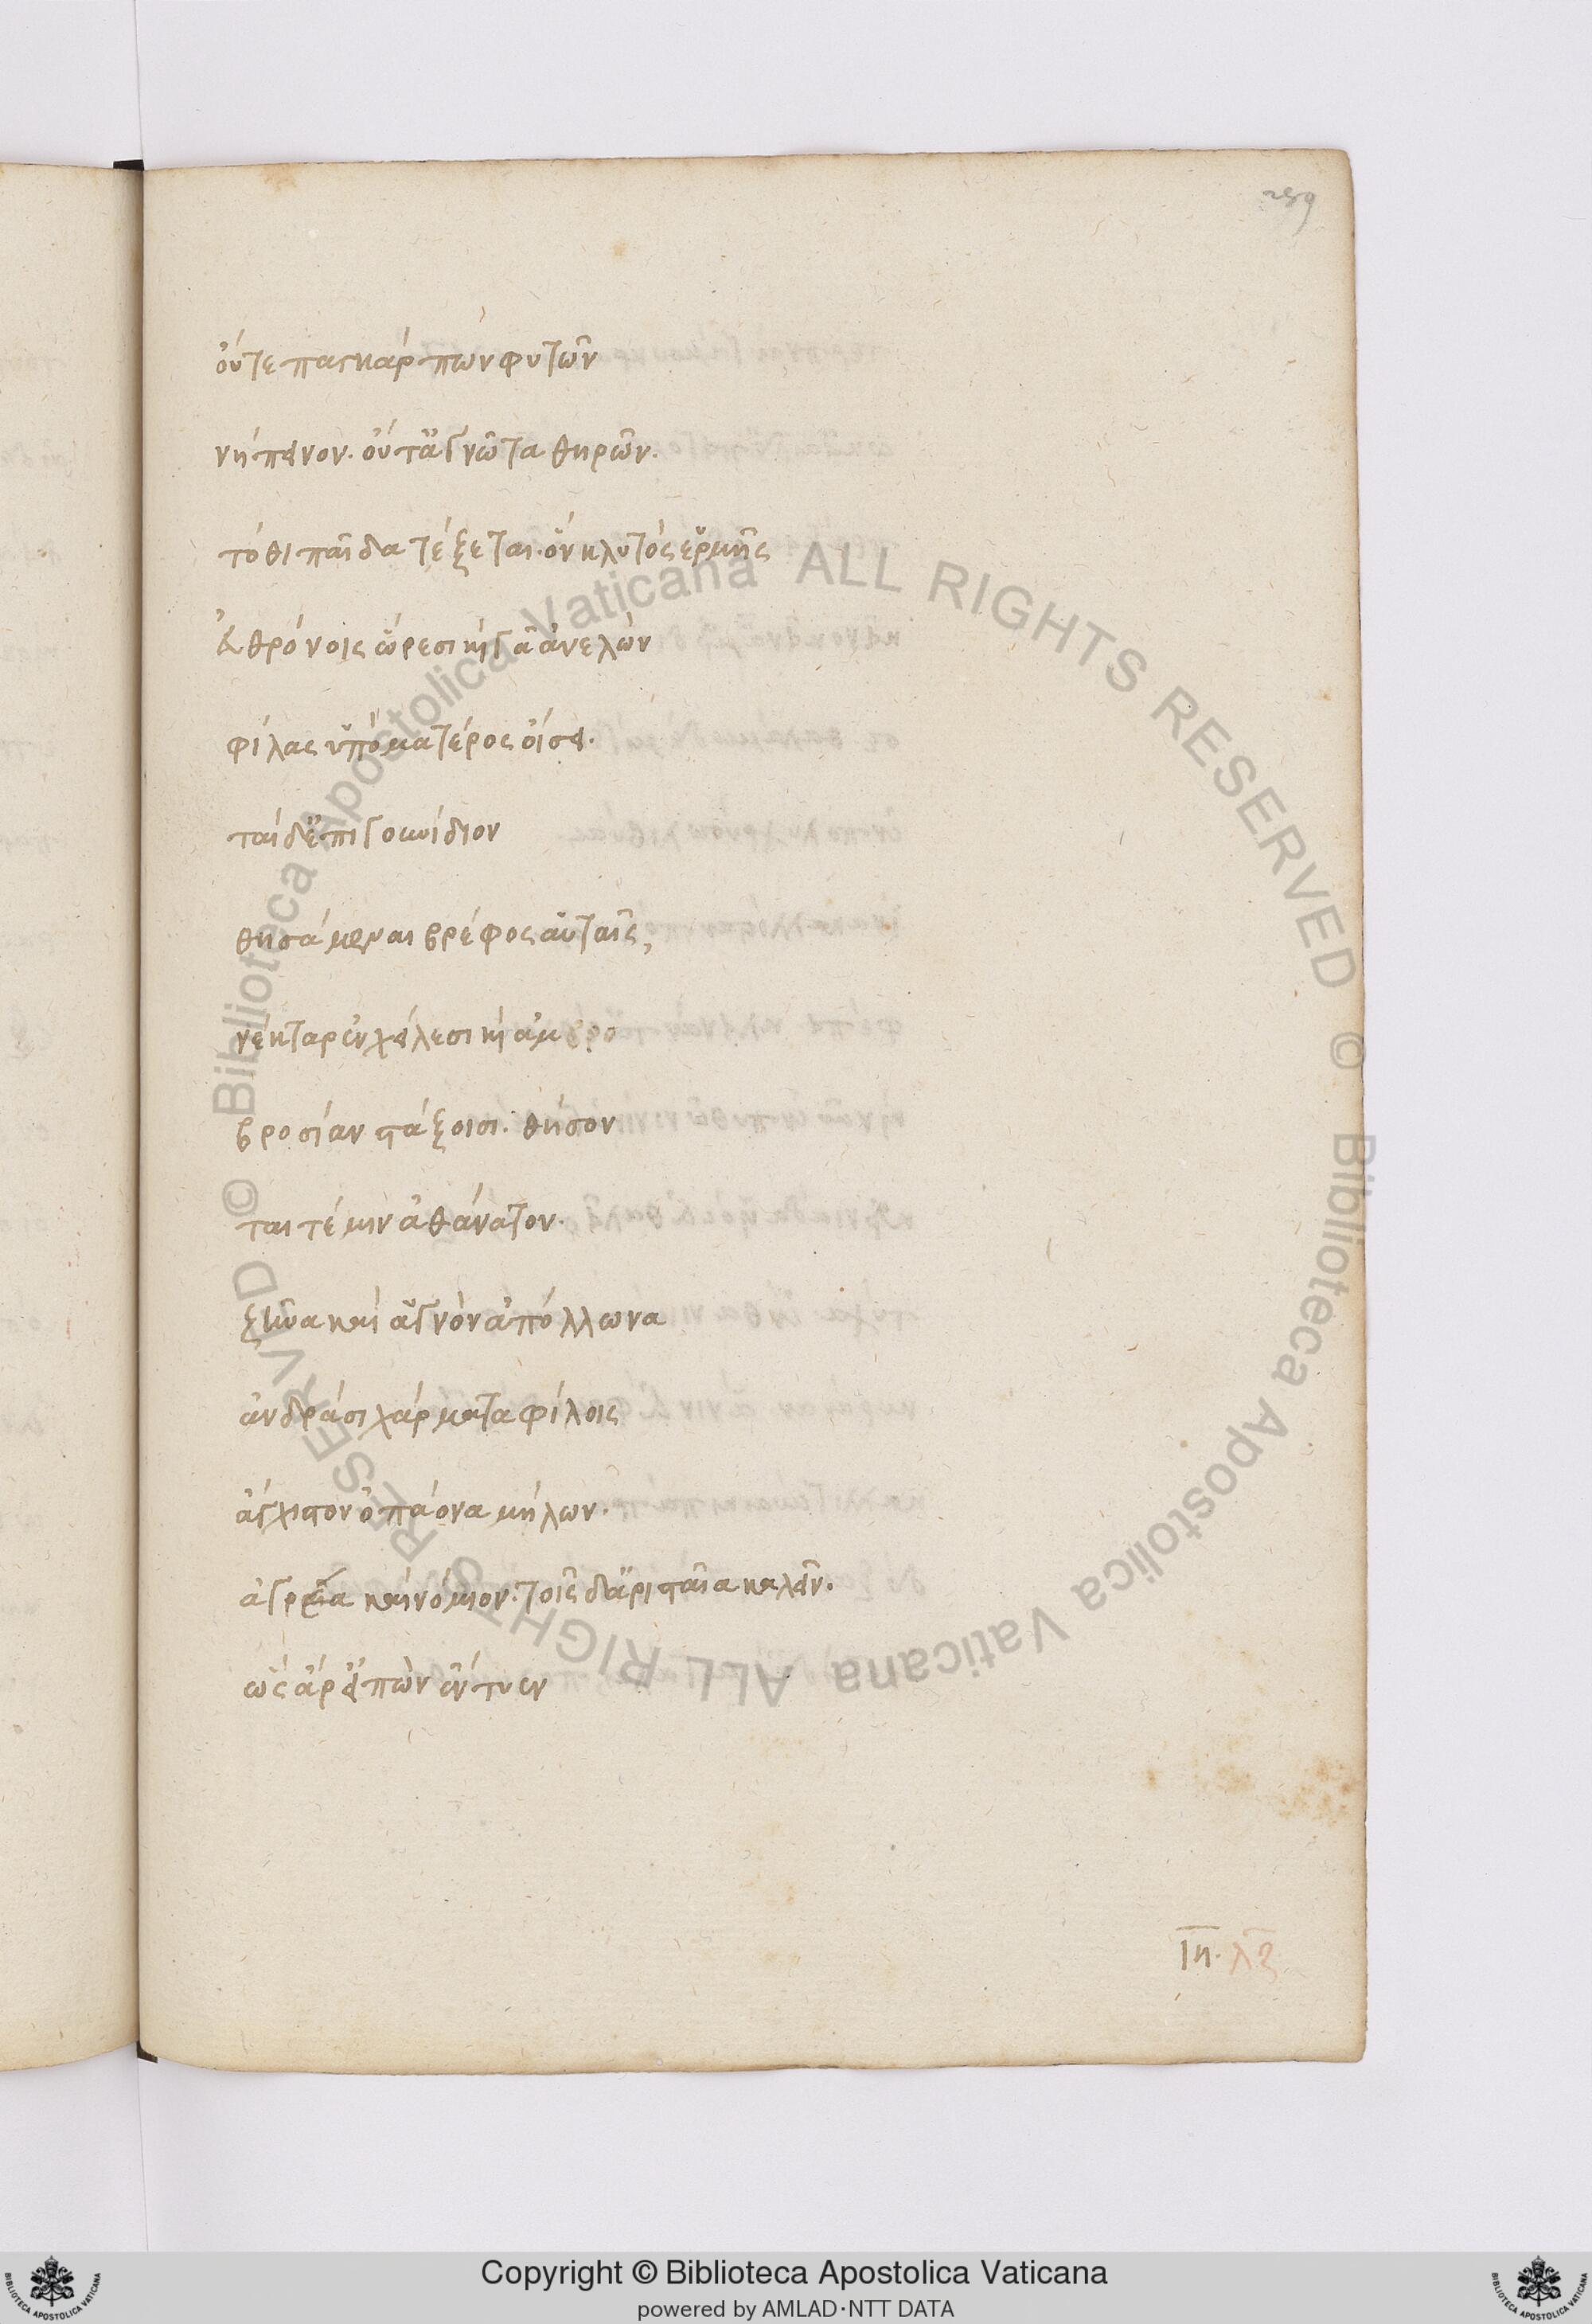 259
οὔτε παγκάρπων φυτῶν
νήποινον. οὔτ' ἀγνῶτα θηρῶν.
τόθι παῖδα τέξεται. ὃν κλυτὸς ἑρμῆς
εὐθρόνοις ὥρεσι καὶ γᾶ ἀνελὼν
φίλας ὑπὸ ματέρος οἴσει.
ταὶ δ' ἐπιγουνίδιον
θησάμεναι βρέφος αὐταῖς,
νέκταρ ἐν χείλεσι καὶ ἀμβρο
βροσίαν στάξοισι. θήσον
ται τέ μιν ἀθάνατον.
ζῆνα καὶ ἁγνὸν ἀπόλλωνα
ἀνδράσι χάρματα φίλοις
ἄγχιστον ὀπάονα μήλων.
ἀγρέα καὶ νόμιον. τοῖς δ' ἀρισταῖα καλεῖν.
ὣς ἄρ' εἰπὼν ἔντυεν
ιη. λζ
© Biblioteca Apostolica Vaticana ALL RIGHTS RESERVED © Biblioteca Apostolica Vaticana ALL RIGHTS RESERVED
Copyright © Biblioteca Apostolica Vaticana
powered by AMLAD·NTT DATA
BIBLIOTECA APOSTOLICA VATICANA
BIBLIOTECA APOSTOLICA VATICANA